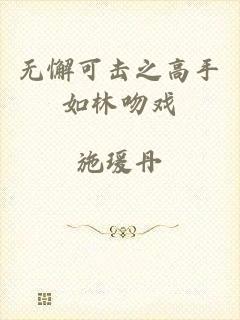 无懈可击之高手
如林吻戏
施瑗丹